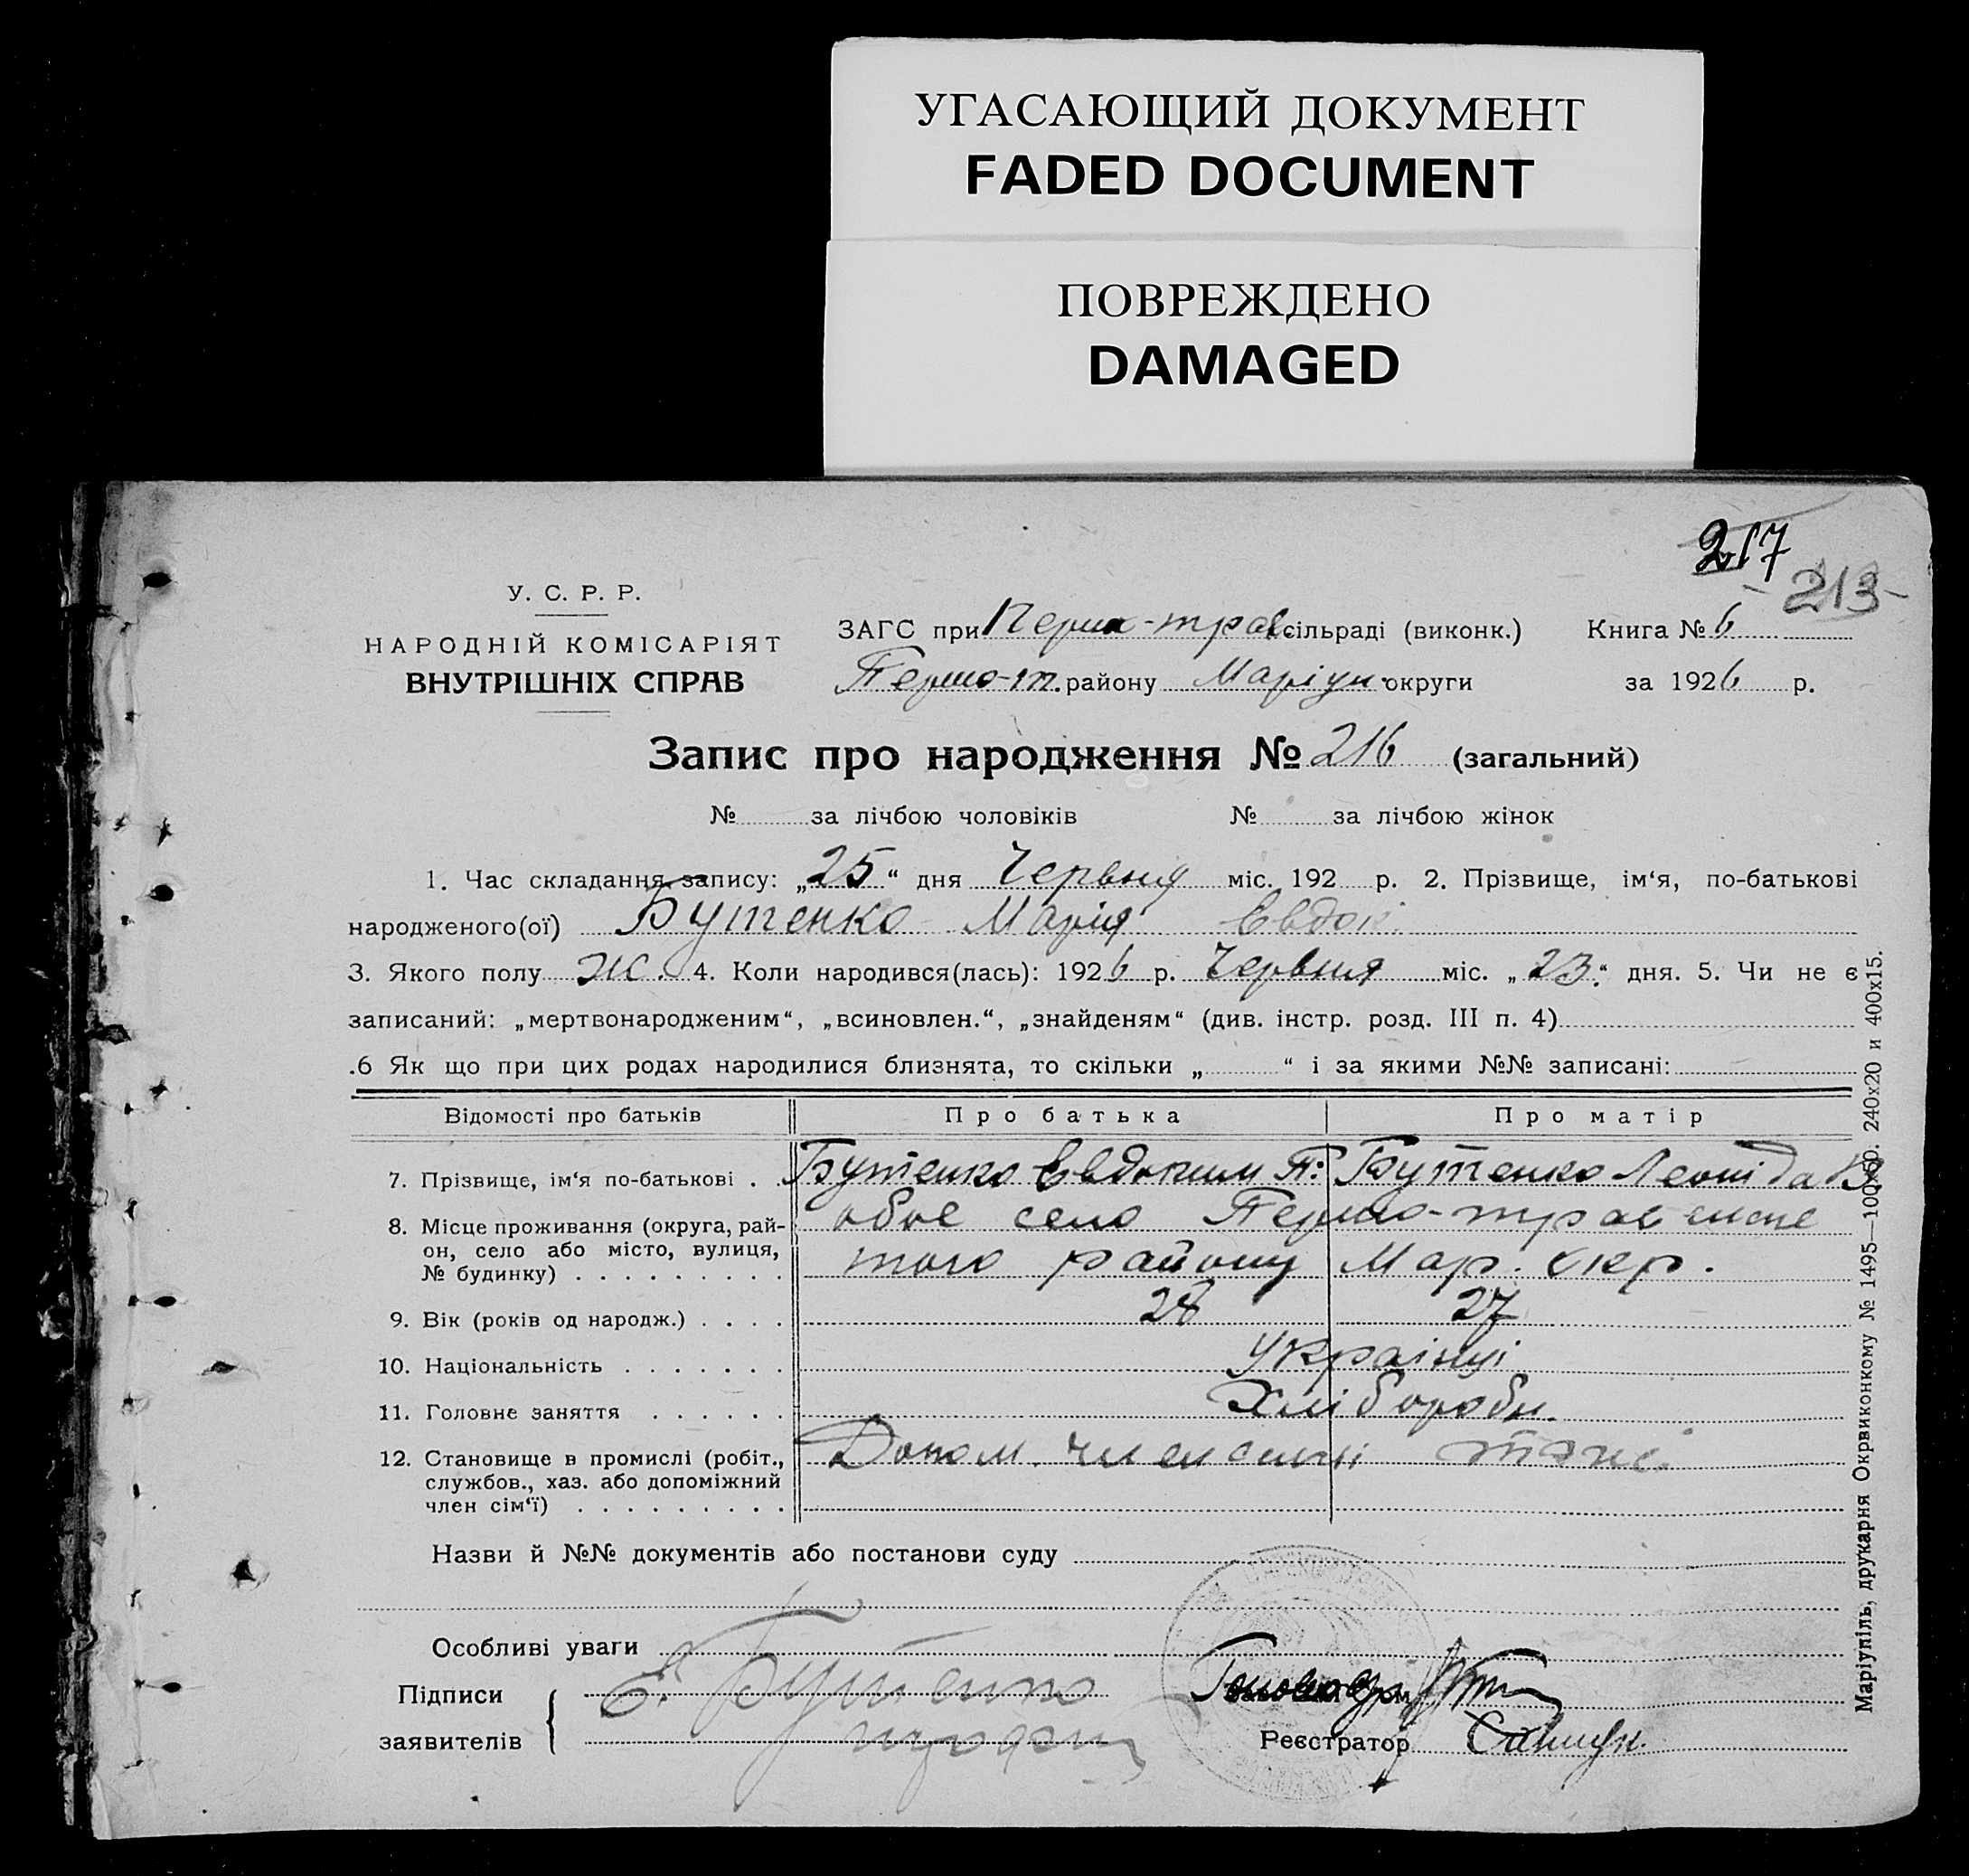 УГАСАЮЩИЙ ДОКУМЕНТ
FADED DOCUMENT
ПОВРЕЖДЕНО
DAMAGED
217
- 213 -
У. С. Р. Р.
НАРОДНІЙ КОМІСАРІЯТ
ВНУТРІШНІХ СПРАВ
ЗАГС при Першо-трав. сільраді (виконк.) Книга № 6
Першо-т. району Маріуп. округи за 1926 р.
Запис про народження № 216 (загальний)
№ за лічбою чоловіків № за лічбою жінок
1. Час складання запису: „25“ дня Червня міс. 192 р. 2. Прізвище, ім‘я, по-батькові
народженого(ої) Бутенко Марія Евдок.
3. Якого полу ж. 4. Коли народився(лась): 1926 р. Червня міс. „23“ дня. 5. Чи не є
записаний: „мертвонародженим“, „всиновлен.“, „знайденям“ (див. інстр. розд. III п. 4)
.6 Як що при цих родах народилися близнята, то скільки „ “ і за якими №№ записані:
Відомості про батьків Про батька Про матір
7. Прізвище, ім‘я по-батькові . Бутенко Евдоким П. Бутенко Леоніда В.
8. Місце проживання (округа, рай-
он, село або місто, вулиця,
№ будинку) . . . . . . . . .
обое село Першо-травенське
того району Мар. окр.
9. Вік (років од народж.) . . . . 28 27
10. Національність . . . . . . . Українці
11. Головне заняття . . . . . . Хлібороби.
12. Становище в промислі (робіт.,
службов., хаз. або допоміжний
член сім‘ї) . . . . . . . . .
Допом. член сім'ї теж.
Назви й №№ документів або постанови суду
Особливі уваги
Підписи
заявителів
Е. Бутенко
Реєстратор
Маріупіль, друкарня Окрвиконкому № 1495—100×50. 240х20 и 400х15.